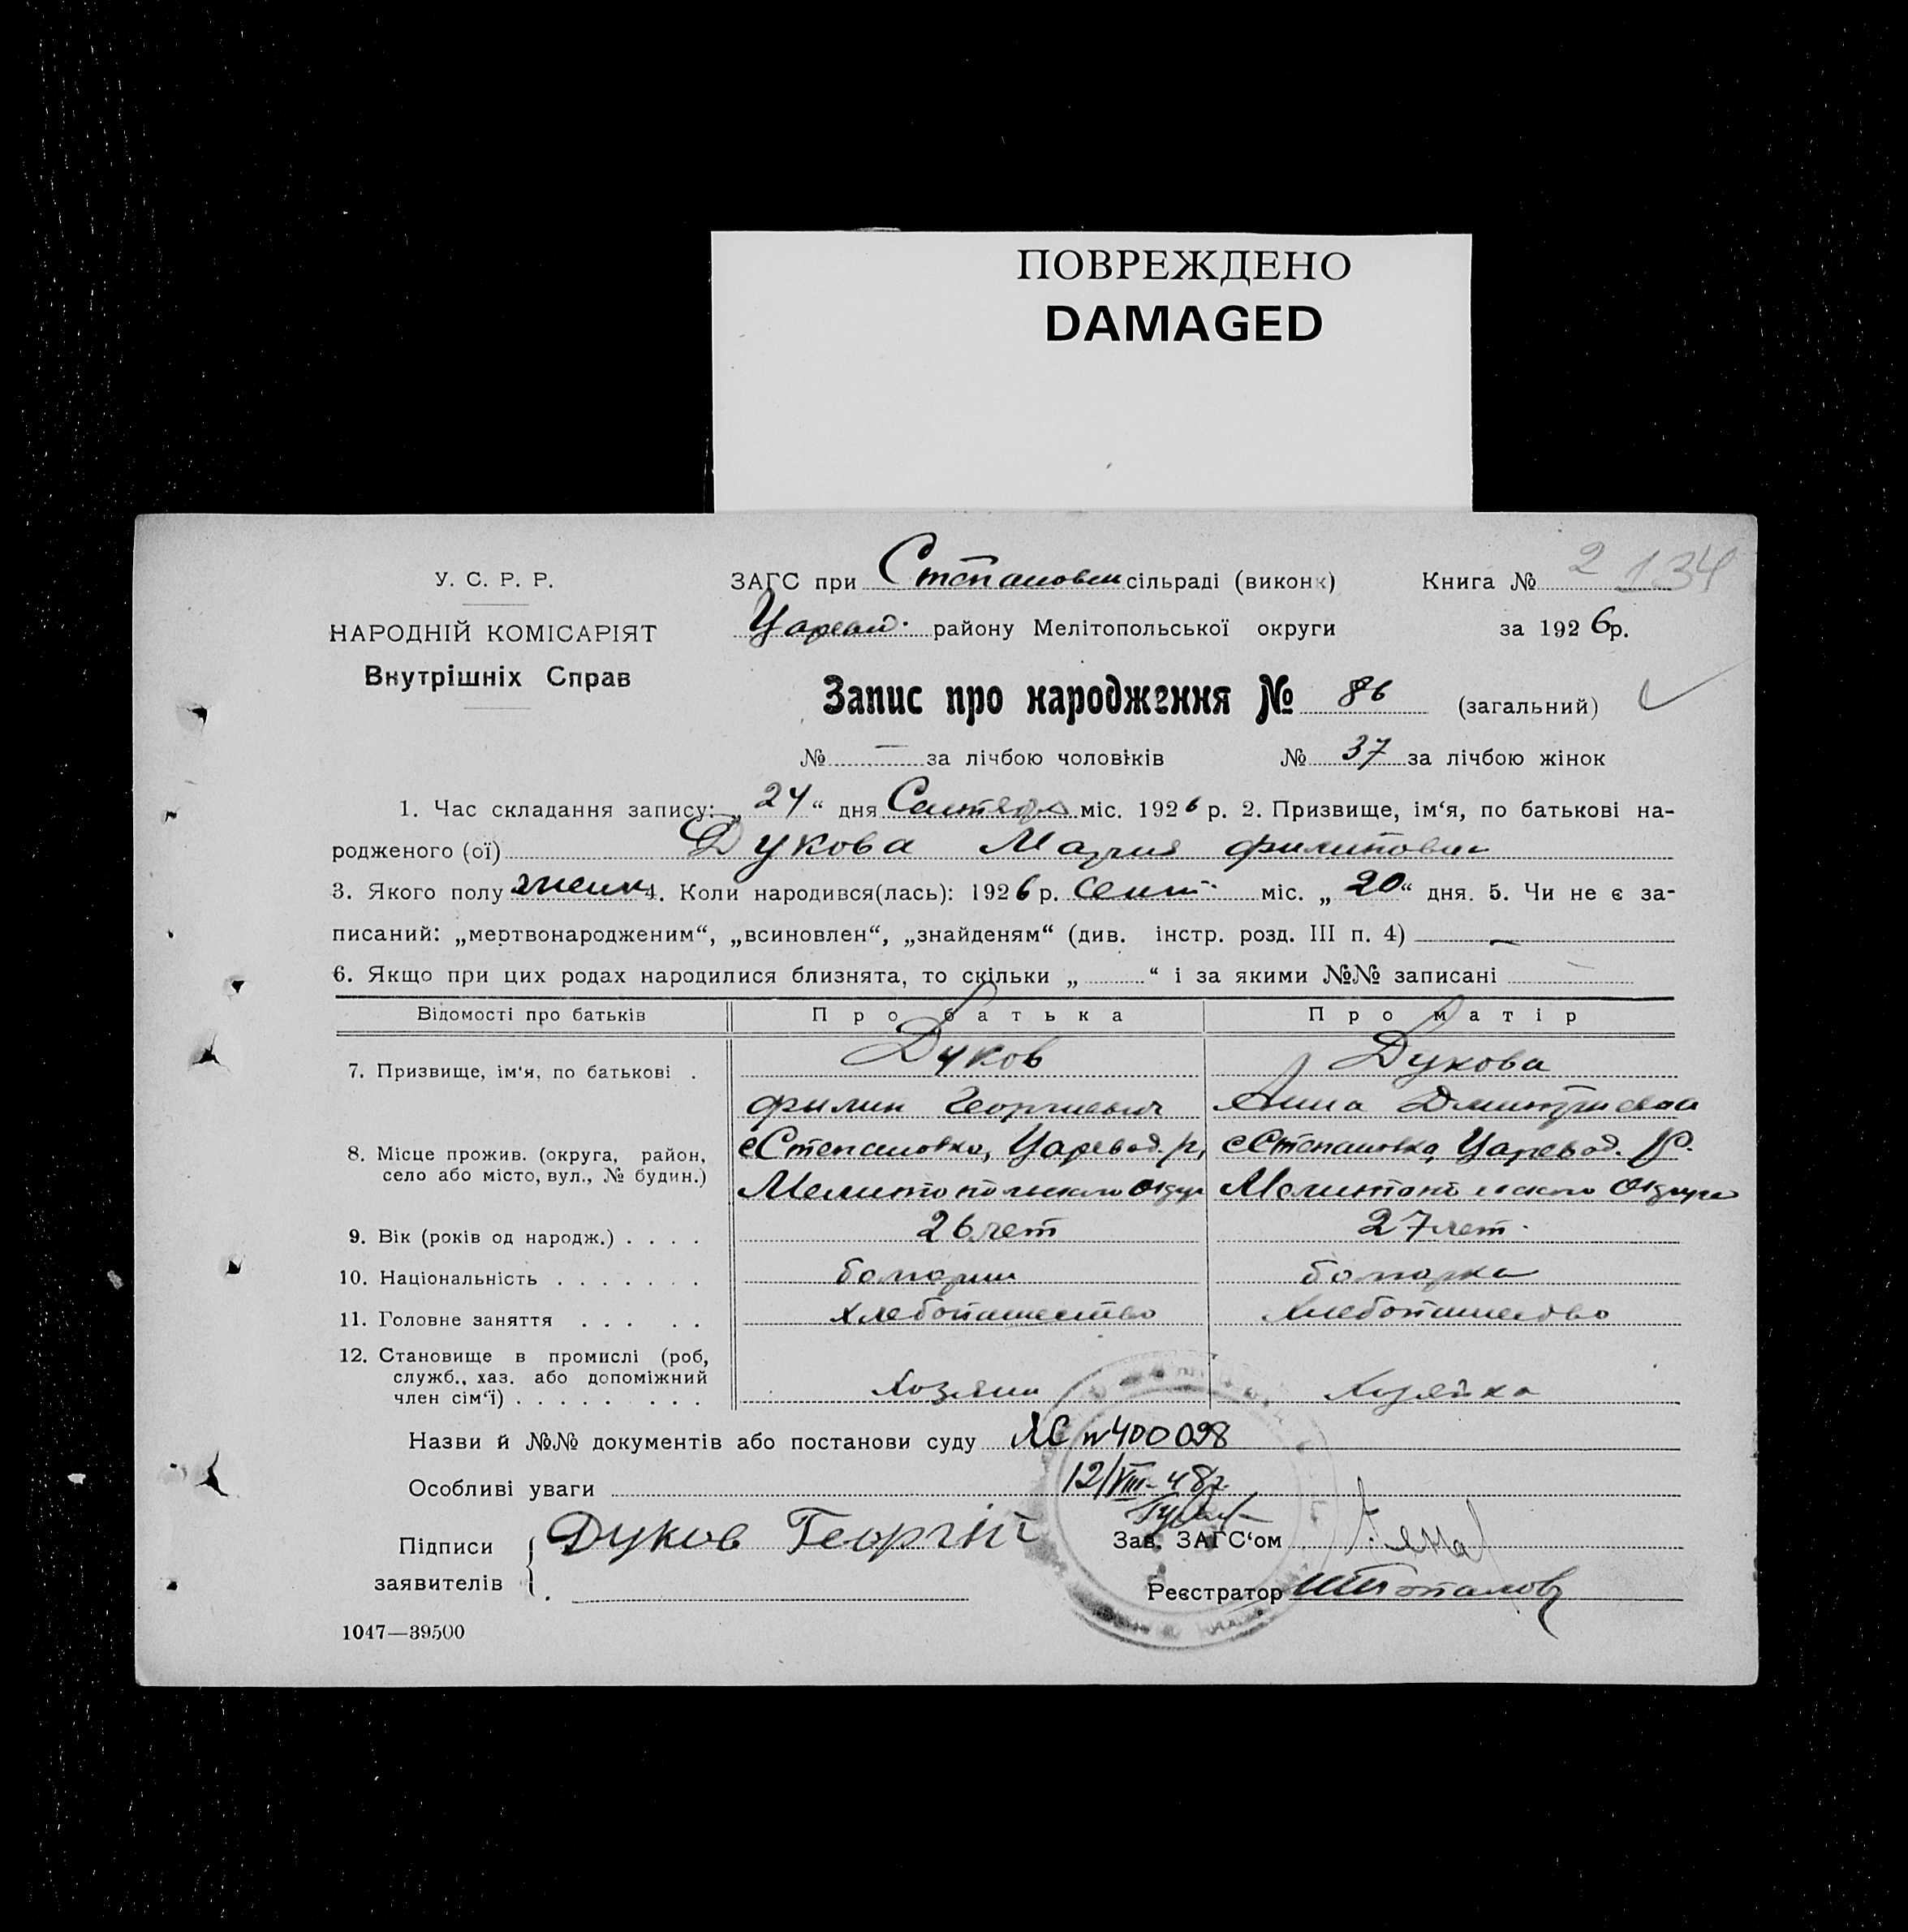 ПОВРЕЖДЕНО
DAMAGED
2 134
У. С. Р. Р.
НАРОДНІЙ КОМІСАРІЯТ
Внутрішніх Справ
ЗАГС при Степановск сільраді (виконк) Книга №
Царевод. району Мелітопольської округи за 1926 р.
Запис про народження № 86 (загальний)
№ — за лічбою чоловіків № 37 за лічбою жінок
1. Час складання запису: „24“ дня Сентября міс. 1926 р. 2. Призвище, ім‘я, по батькові на-
родженого (ої) Дукова Мария Филиповна
3. Якого полу женск 4. Коли народився(лась): 1926 р. Сент. міс. „20“ дня. 5. Чи не є за-
писаний: „мертвонародженим“, „всиновлен“, „знайденям“ (див. інстр. розд. III п. 4) —
6. Якщо при цих родах народилися близнята, то скільки „ “ і за якими №№ записані
Відомості про батьків Про батька Про матір
7. Призвище, ім‘я, по батькові . Дуков Дукова
Филип Георгиевич Анна Дмитриевна
8. Місце прожив. (округа, район, с Степановка, Царевод. р, с Степановка, Царевод. р.
село або місто, вул., № будин.) Мелитопольского округ Мелитопольского округа
9. Вік (років од народж.) . . . . 26 лет 27 лет.
10. Національність . . . . . . . болгарин болгарка
11. Головне заняття . . . . . хлебопашество хлебопашество
12. Становище в промислі (роб,
служб., хаз. або допоміжний
член сім‘ї) . . . . . . . . . Хозяин Хозяйка
Назви й №№ документів або постанови суду ЯС № 400098
Особливі уваги 12/VIII-48г.
Підписи
заявителів Дуков Георгій
Зав. ЗАГС‘ом
Реєстратор Топалов
1047—39500